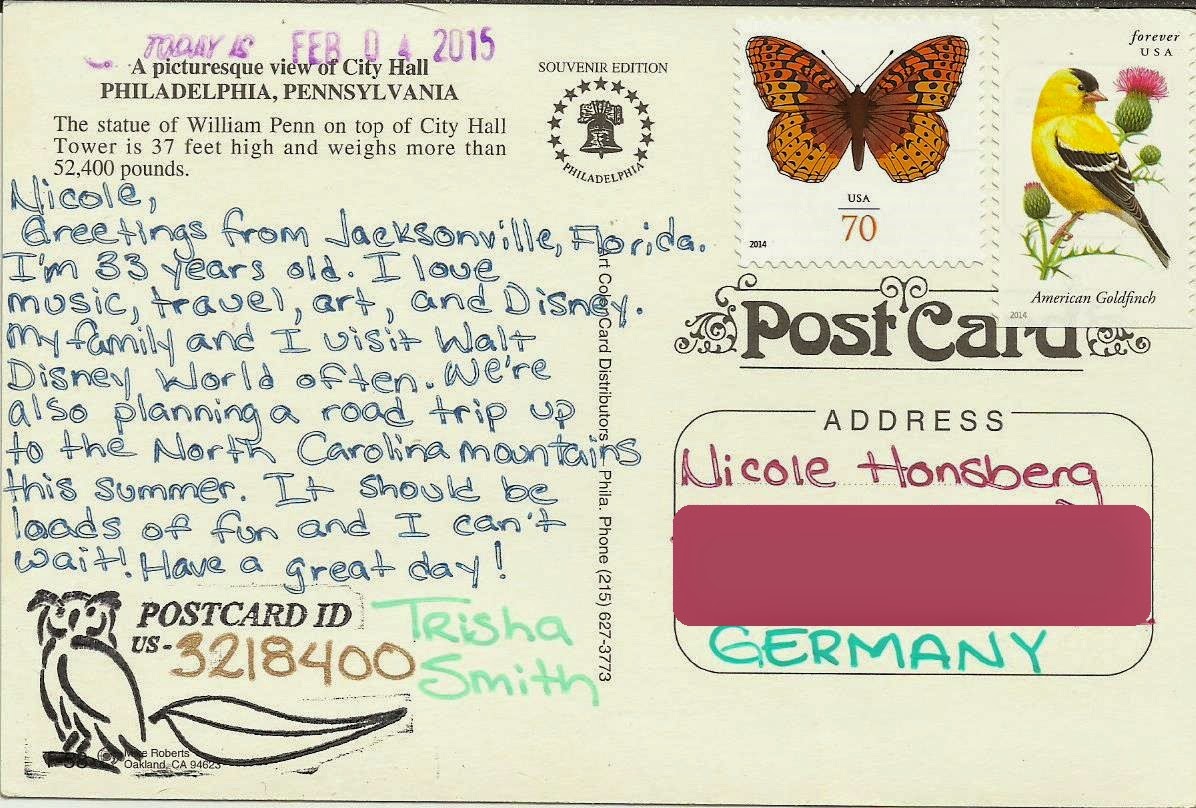 TODAY IS FEB 04 2015
A picturesque view of City Hall
PHILADELPHIA, PENNSYLVANIA
The statue of William Penn on top of City Hall
Tower is 37 feet high and weighs more than
52,400 pounds.
SOUVENIR EDITION
PHILADELPHIA
USA
70
2014
forever
USA
American Goldfinch
2014
Nicole,
Greetings from Jacksonville, Florida.
I'm 33 years old. I love
music, travel, art, and Disney.
My family and I visit Walt
Disney World often. We're
also planning a road trip up
to the North Carolina mountains
this summer. It should be
loads of fun and I can't
wait! Have a great day!
Trisha
Smith
POSTCARD ID
US-3218400
Roberts
Oakland, CA 94623
Art Color Card Distributors, Phila. Phone (215) 627-3773
Post Card
ADDRESS
Nicole Honsberg
GERMANY